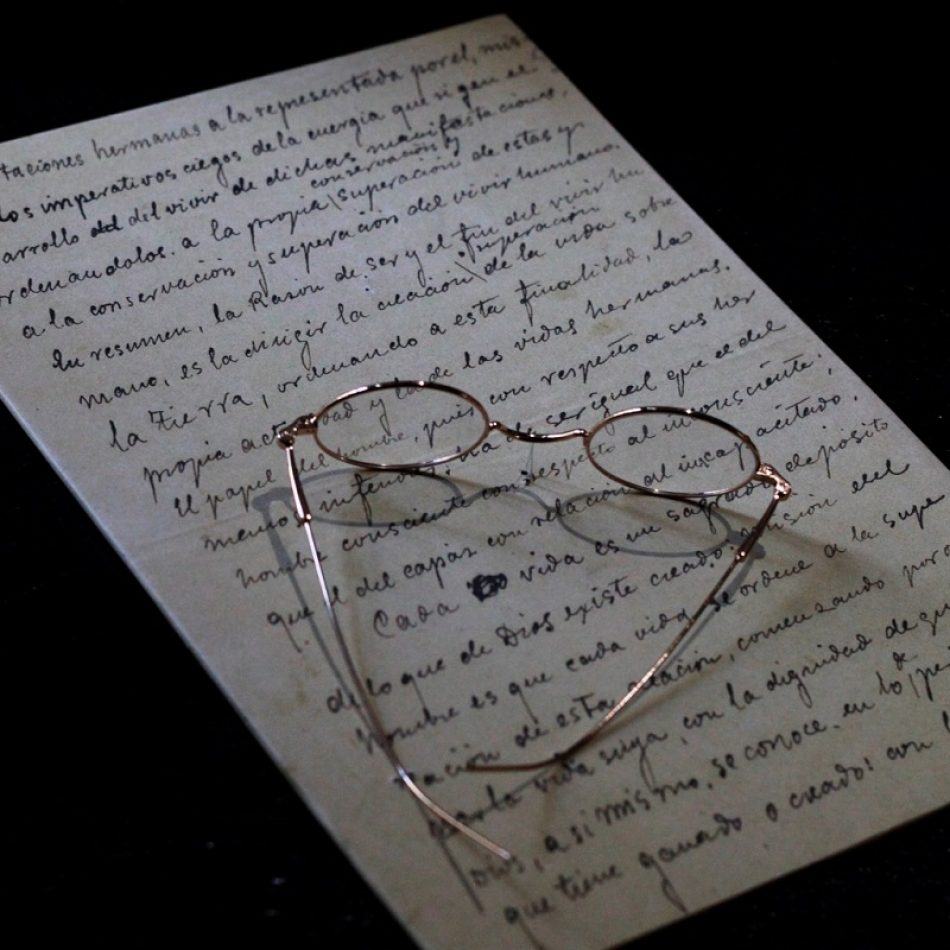 taciones hermanas a la representada por el, mis
los imperativos ciegos de la energia que siguen el
arrollo del del vivir de dichas manifestaciones,
conservación y
ordenandolos. a la propia \ superación de estas y
a la conservación y superación del vivir humano.
En resumen, la Razón de ser y el fin del vivir hu
superación
mano, es la dirigir la creación \ de la vida sobre
la Tierra, ordenando a esta finalidad, la
propia actividad y la de las vidas hermanas.
El papel del hombre, pues con respecto a sus her
menos inferiores ha de ser igual que el del
hombre consciente con respecto al inconsciente,
que el del capáz con relación al incapacitado.
Cada vida es un sagrado depósito
de lo que de Dios existe creado: misión del
hombre es que cada vida se ordene a la supe
ración de esta creación, comenzando por
la vida suya, con la dignidad de
Dios, a si mismo, se conoce. en lo
que tiene ganado o creado: con